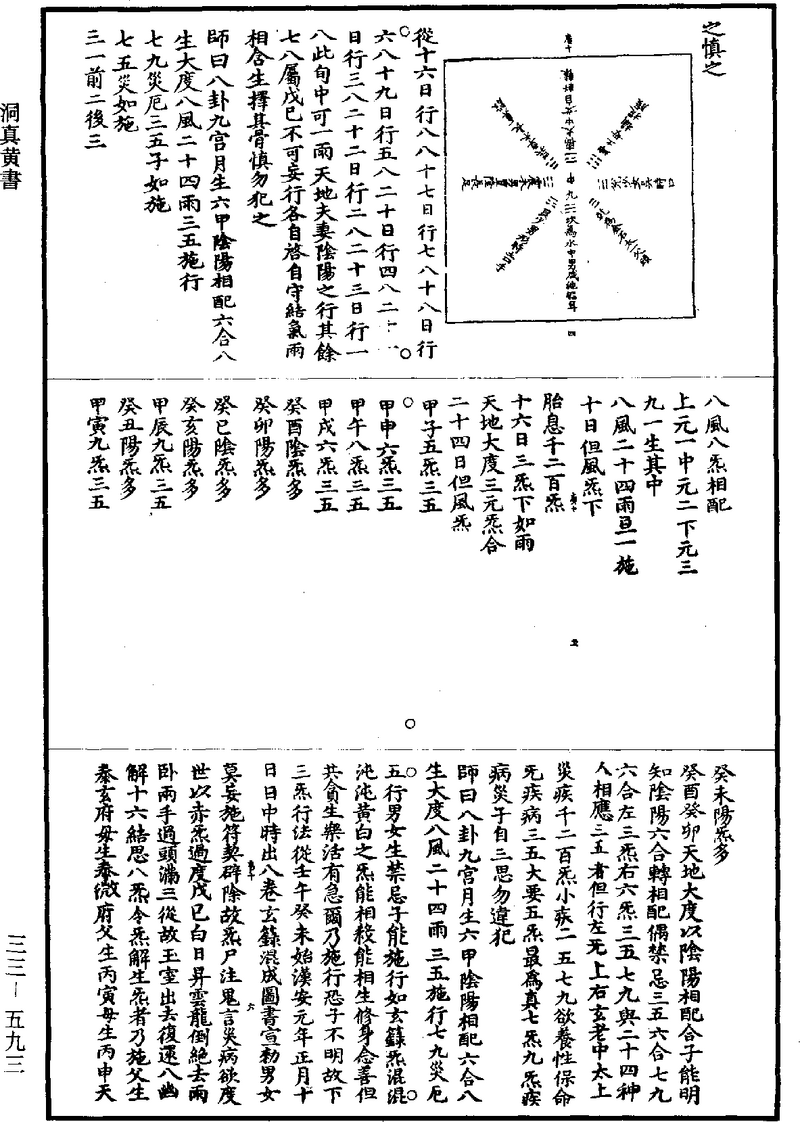 之慎之
中九
坎為水中男
四
從十六日行八八十七日行七八十八日行
六八十九日行五八二十日行四八二十一
日行三八二十二日行二八二十三日行一
八此旬中可一雨天地夫妻陰陽之行其餘
七八屬戊巳不可妄行各自啓自守結氣雨
相合生擇其骨慎勿犯之
師曰八卦九宮月生六甲陰陽相配六合八
生大度八風二十四雨三五施行
七九災厄三五子如施
七五災如施
三一前二後三
八風八炁相配
上元一中元二下元三
九一生其中
八風二十四雨亘一施
十日但風炁下
胎息千二百炁
十六日三炁下如雨
天地大度三元炁合
二十四日但風炁
甲子五炁三五
甲申六炁三五
甲午八炁三五
甲戌六炁三五
癸酉陰炁多
癸卯陽炁多
癸巳陰炁多
癸亥陽炁多
甲辰九炁三五
癸丑陽炁多
甲寅九炁三五
五
癸未陽炁多
癸酉癸卯天地大度以陰陽相配合子能明
知陰陽六合轉相配偶禁忌三五六合七九
六合左三炁右六炁三五七九與二十四神
人相應三五者但行左无上右玄老中太上
災疾千二百炁小疾二五七九欲養性保命
死疾病三五大要五炁最為真七炁九炁疾
病災子自三思勿違犯
師曰八卦九宮月生六甲陰陽相配六合八
生大度八風二十四雨三五施行七九災厄
五行男女生禁忌子能施行如玄籙炁混混
沌沌黃白之炁能相殺能相生修身念善但
共貪生樂活有急爾乃施行恐子不明故下
三炁行法從壬午癸未始漢安元年正月十
日日中時出八卷玄籙混成圖書宣勑男女
六
莫妄施符契辟除故炁尸注鬼言災病欲度
世以赤炁過度戊巳白日昇雲龍倒絶去雨
卧兩手過頭滿三從故玉室出去復還八幽
解十六結思八炁令炁解生炁者乃施父生
泰玄府母生泰微府父生丙寅母生丙申天
洞真黃書
三三—五九三